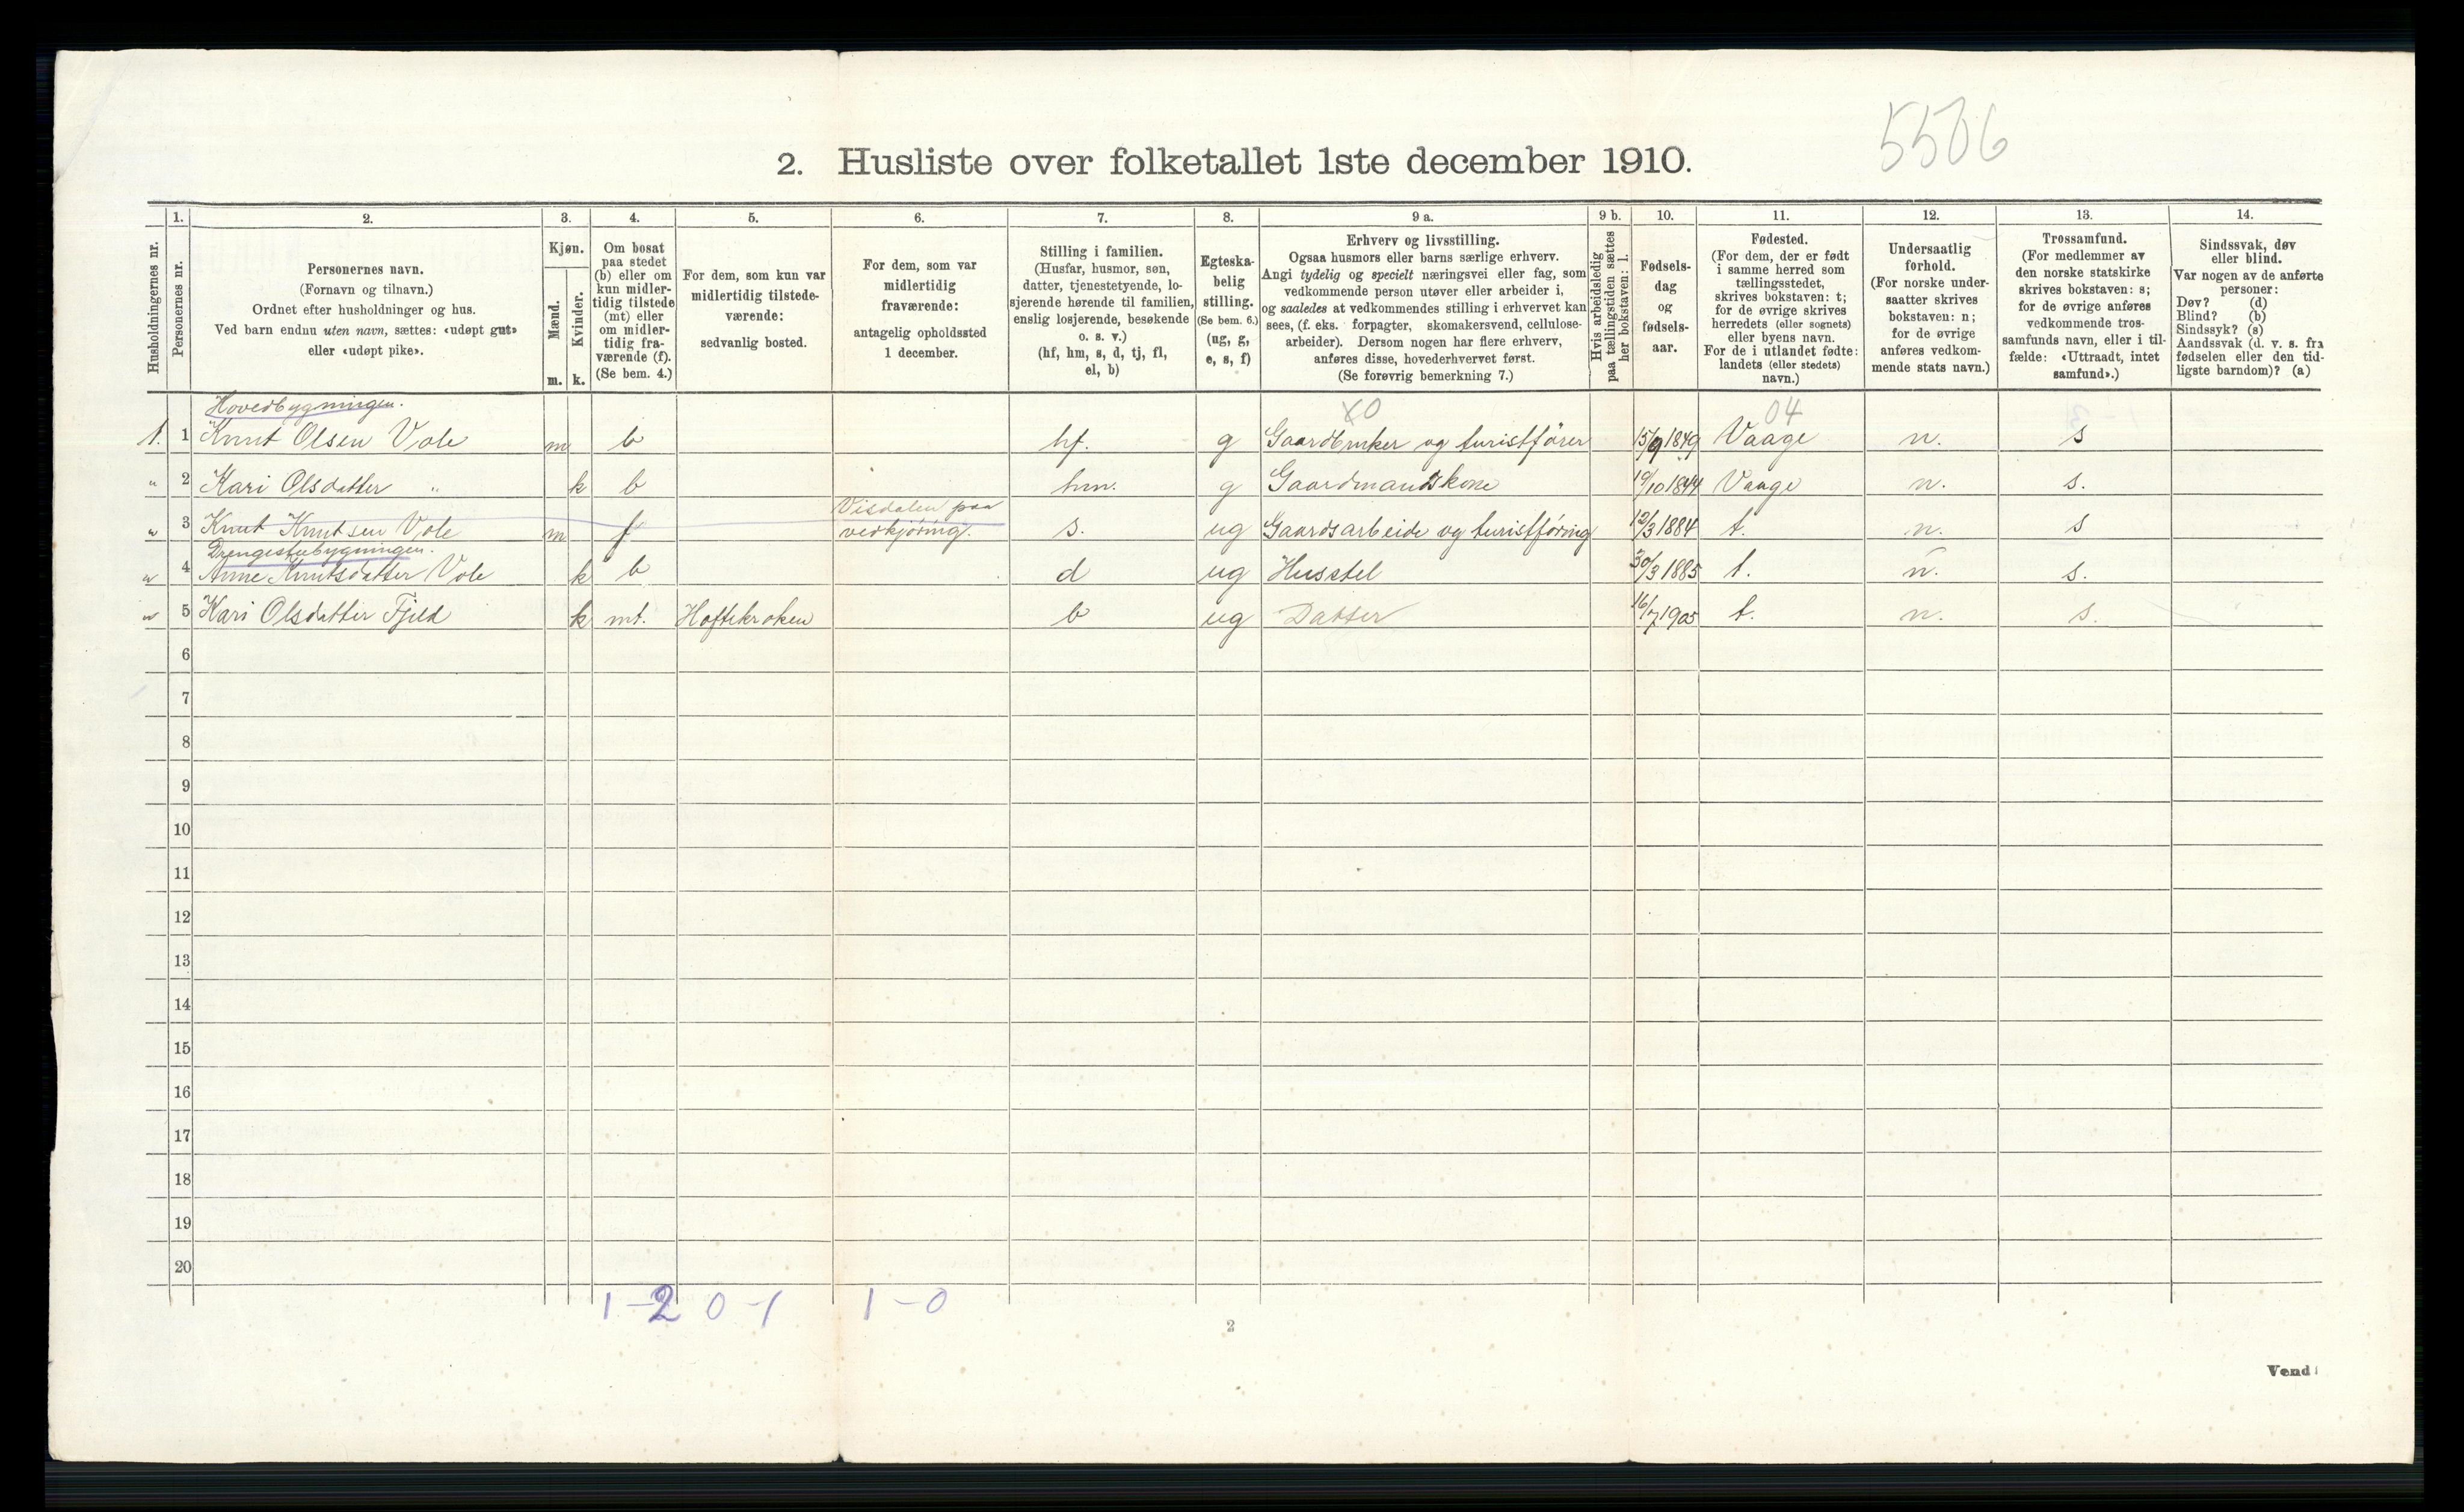 5506
2. Husliste over folketallet 1ste december 1910.
Husholdningernes nr.
1.
Personernes nr.
2.
Personernes navn.
(Fornavn og tilnavn.)
Ordnet efter husholdninger og hus.
Ved barn endnu uten navn, sættes: «udøpt gut»
eller «udøpt pike».
3.
Kjøn.
Mænd.
Kvinder.
m. k.
4.
Om bosat
paa stedet
(b) eller om
kun midler-
tidig tilstede
(mt) eller
om midler-
tidig fra-
værende (f).
(Se bem. 4.)
5.
For dem, som kun var
midlertidig tilstede-
værende:
sedvanlig bosted.
6.
For dem, som var
midlertidig
fraværende:
antagelig opholdssted
1 december.
7.
Stilling i familien.
(Husfar, husmor, søn,
datter, tjenestetyende, lo-
sjerende hørende til familien,
enslig losjerende, besøkende
o. s. v.)
(hf, hm, s, d, tj, fl,
el, b)
8.
Egteska-
belig
stilling.
(Se bem. 6.)
(ug, g,
e, s, f)
9 a.
Erhverv og livsstilling.
Ogsaa husmors eller barns særlige erhverv.
Angi tydelig og specielt næringsvei eller fag, som
vedkommende person utøver eller arbeider i,
og saaledes at vedkommendes stilling i erhvervet kan
sees, (f. eks. forpagter, skomakersvend, cellulose-
arbeider). Dersom nogen har flere erhverv,
anføres disse, hovederhvervet først.
(Se forøvrig bemerkning 7.)
9 b.
Hvis arbeidsledig
paa tællingstiden sættes
her bokstaven: l.
10.
Fødsels-
dag
og
fødsels-
aar.
11.
Fødested.
(For dem, der er født
i samme herred som
tællingsstedet,
skrives bokstaven: t;
for de øvrige skrives
herredets (eller sognets)
eller byens navn.
For de i utlandet fødte:
landets (eller stedets)
navn.)
12.
Undersaatlig
forhold.
(For norske under-
saatter skrives
bokstaven: n;
for de øvrige
anføres vedkom-
mende stats navn.)
13.
Trossamfund.
(For medlemmer av
den norske statskirke
skrives bokstaven: s;
for de øvrige anføres
vedkommende tros-
samfunds navn, eller i til-
fælde: «Uttraadt, intet
samfund».)
14.
Sindssvak, døv
eller blind.
Var nogen av de anførte
personer:
Døv? (d)
Blind? (b)
Sindssyk? (s)
Aandssvak (d. v. s. fra
fødselen eller den tid-
ligste barndom)? (a)
Hovedbygningen. X0 04
1. 1 Knut Olsen Vole m b hf. g Gaardbruker og turistfører 15/9 1849 Vaage n. s
" 2 Kari Olsdatter " k b hm. g Gaardmandskone 19/10 1844 Vaage n. s.
Visdalen paa
" 3 Knut Knutsen Vole m f vedkjøring. s. ug Gaardsarbeide og turistføring 12/3 1884 t. n. s
Drengestubygningen.
" 4 Anne Knutsdatter Vole k b d ug Husstel 30/3 1885 t. n. s.
" 5 Kari Olsdatter Fjeld k mt. Hoftekroken b ug Datter 16/7 1905 t. n. s.
6
7
8
9
10
11
12
13
14
15
16
17
18
19
20
1-2 0-1 1-0
2
Vend!